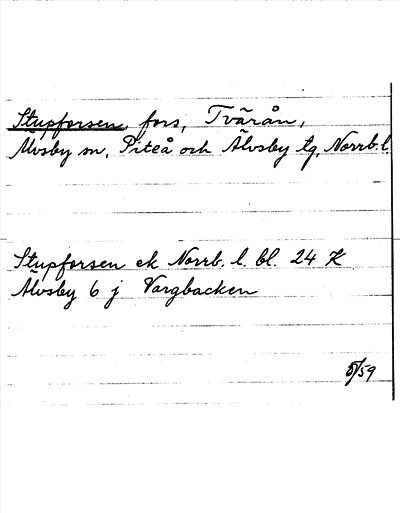 Stupforsen, fors, Tvärån,
Älvsby sn, Piteå och Älvsby tg, Norrb. l.
Stupforsen ek Norrb. l. bl. 24 K
Älvsby 6 j Vargbacken
5/59